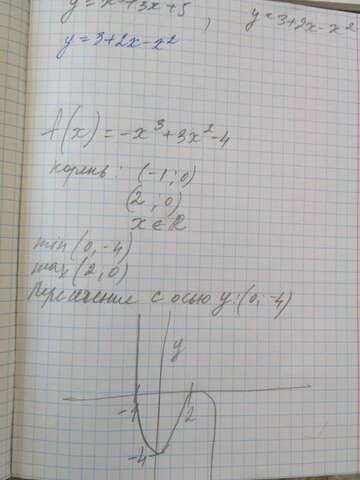 y=x²+3x+5, y=3+2x-x²
y=3+2x-x²
f(x)=-x³+3x²-4
корень: (-1;0)
(2;0)
x∈R
min(0,-4)
max(2,0)
Пересечение с осью y:(0,-4)
y
-1 2
-4